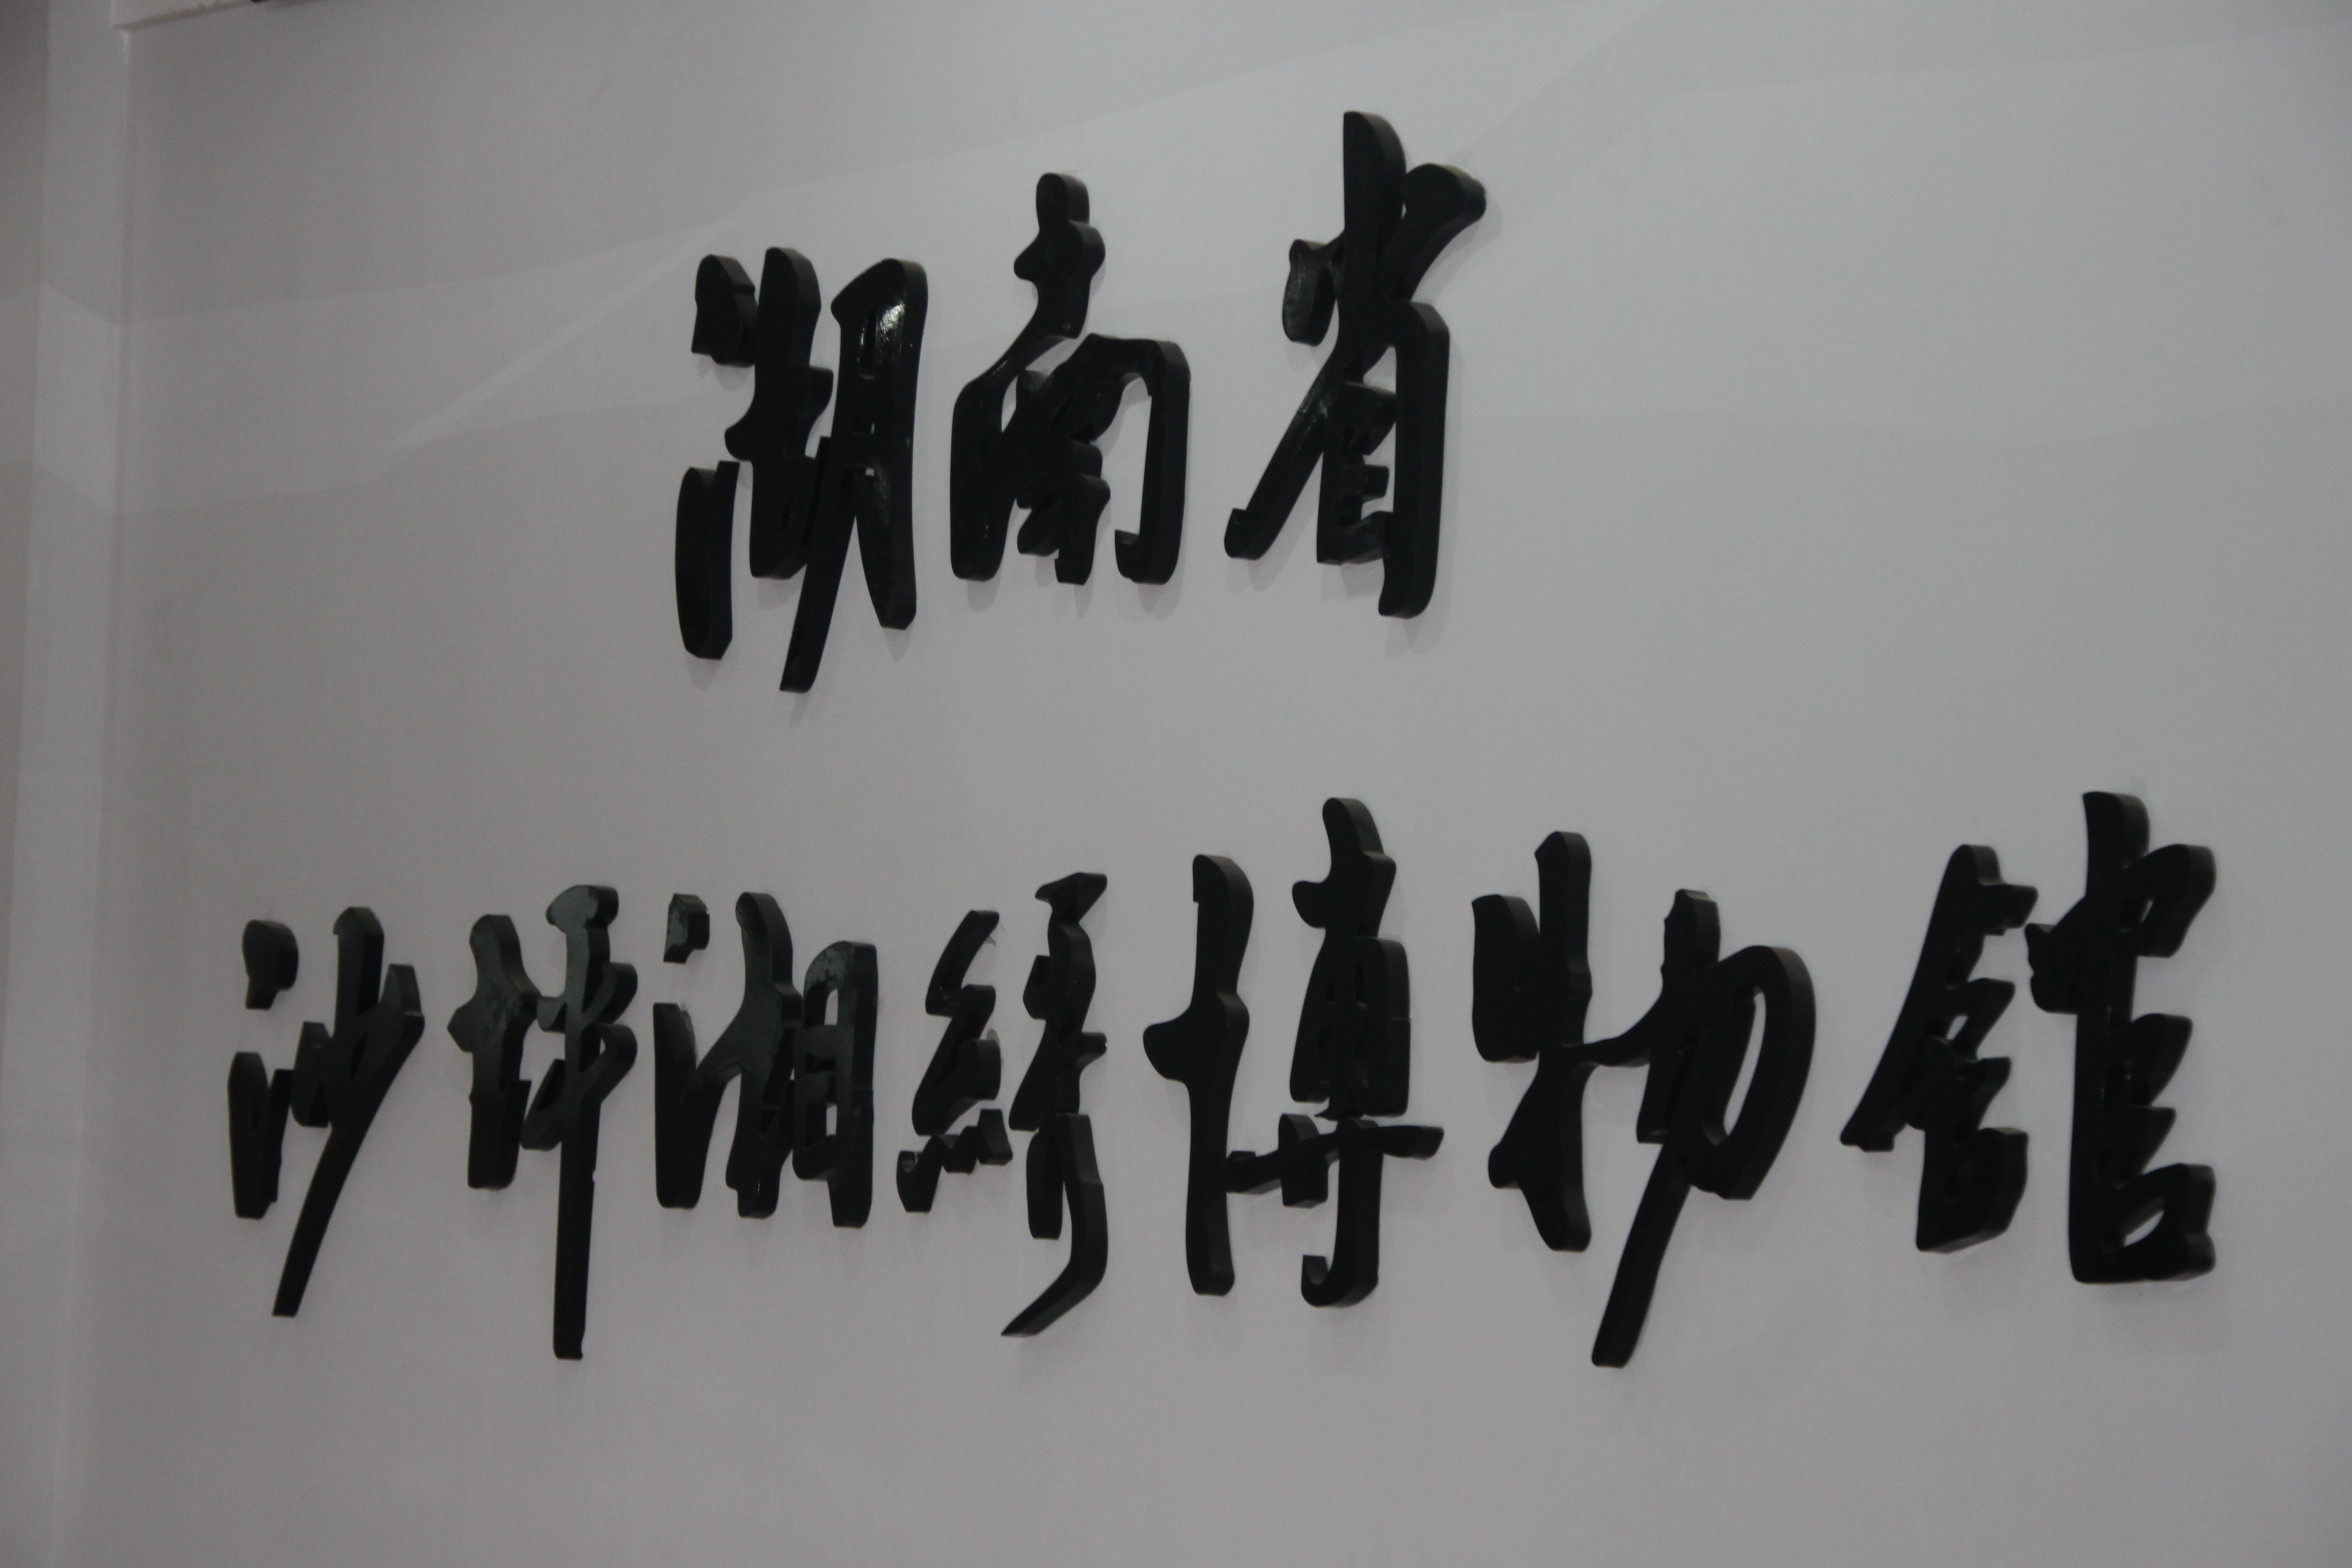 湖南省
沙坪湘繡博物館